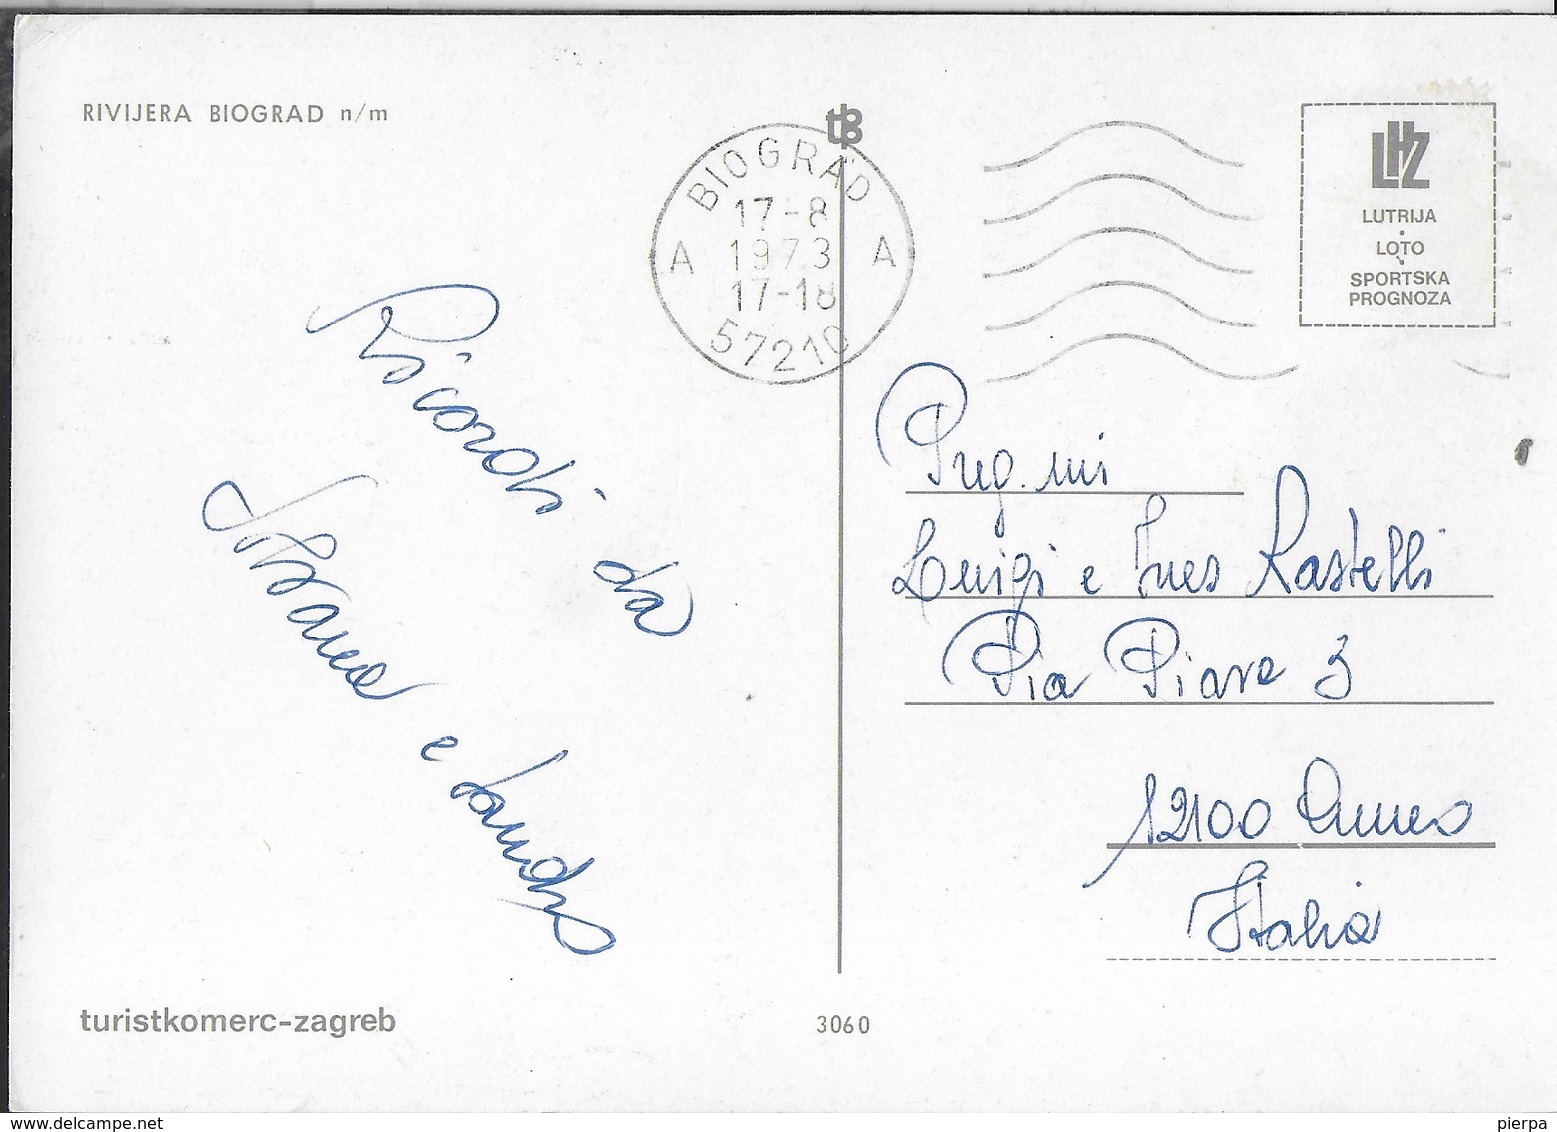 RIVIJERA BIOGRAD n/m
BIOGRAD
17-8
A 1973 A
17-18
57210
LHZ
LUTRIJA
LOTO
SPORTSKA
PROGNOZA
Ricordi da
Silvana e Sandro
Preg.mi
Luigi e Ines Rastelli
Via Piave 3
12100 Cuneo
Italia
turistkomerc-zagreb
3060
www.delcampe.net
pierpa